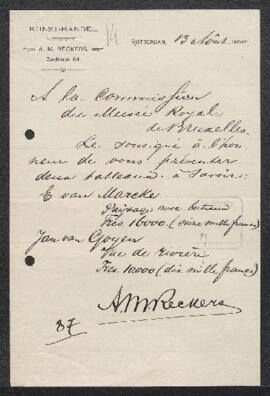 KUNST-HANDEL
A. M. RECKERS
Zuidblaak 64.
ROTTERDAM, 13 Août
14
A la Commission
des Musées Royal
de Bruxelles.
Le soussigné a l'hon-
neur de vous présenter
deux tableaux à savoir:
E van Marcke
Paysage avec bétail
Frcs 16000 (seize mille francs)
Jan van Goyen
Vue de rivière
Frcs. 10000 (dix mille francs)
AMReckers
87